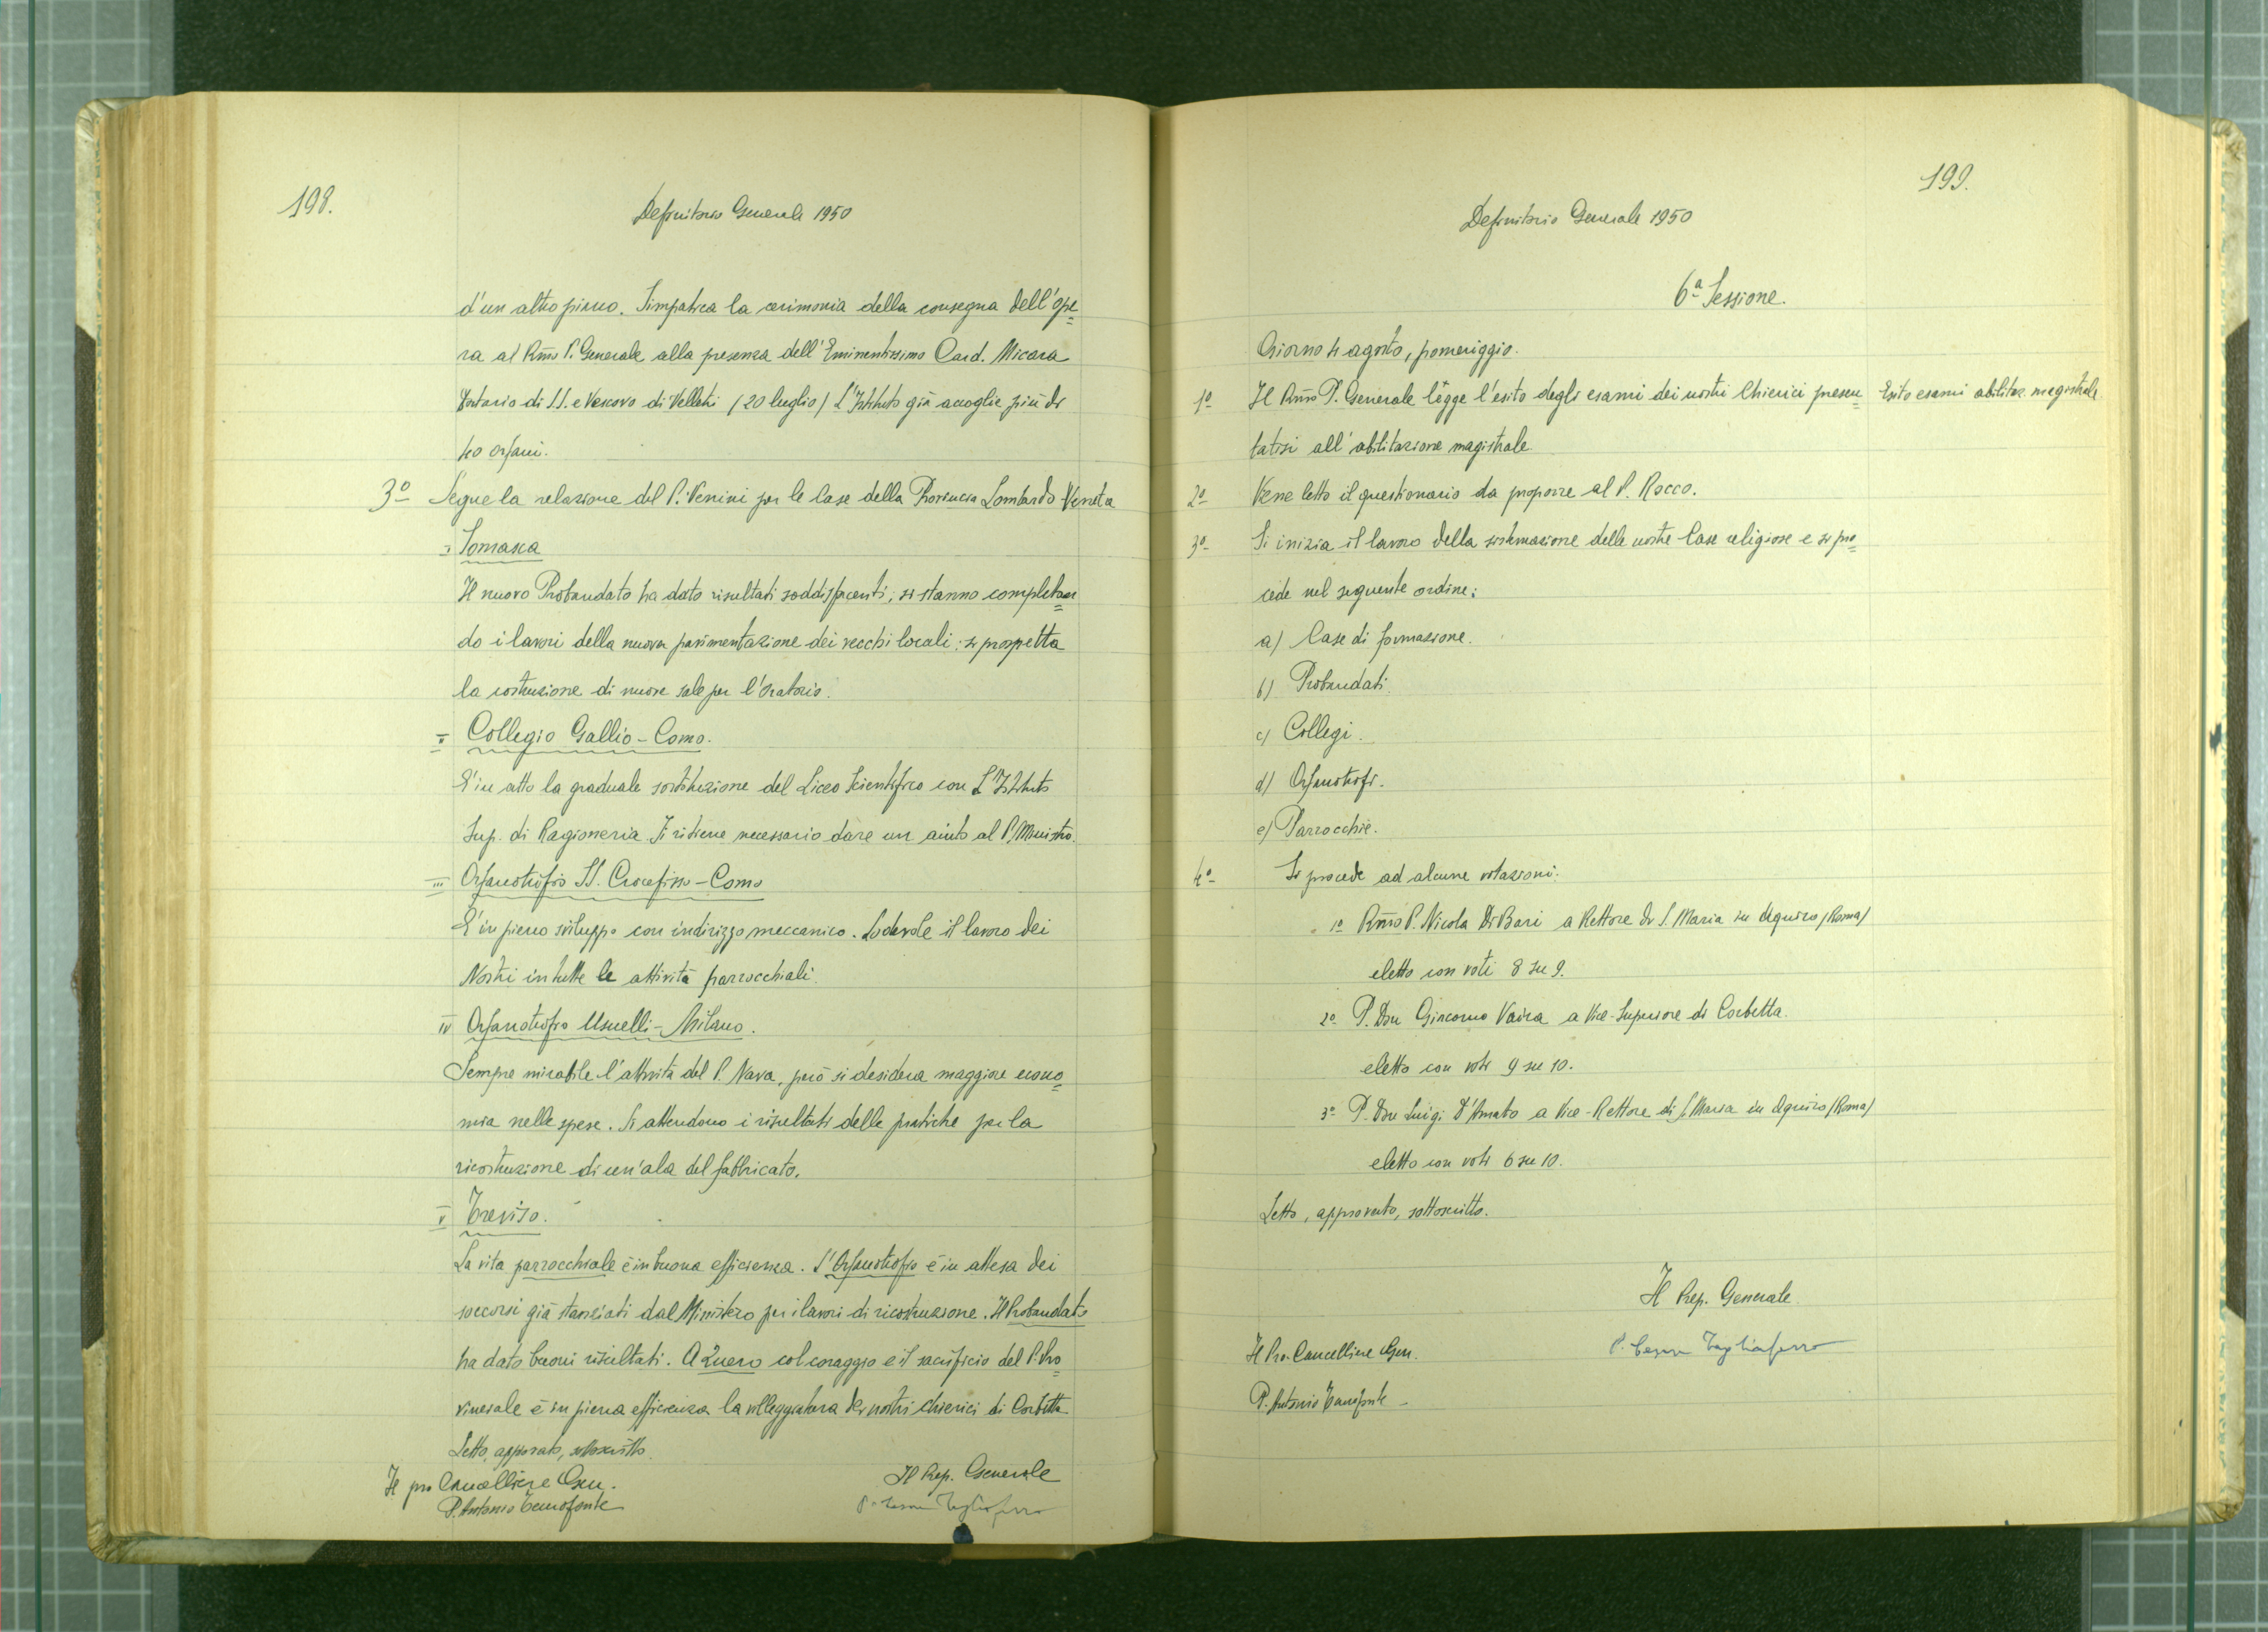 198.
Definitorio Generale 1950
d'un altro piano. Simpatica la cerimonia della consegna dell'ope=
ra al Rmo P. Generale alla presenza dell'Eminentissimo Card. Micara
di S.S. e Vescovo di Velletri (20 luglio) L'Istituto già accoglie più di
40 orfani.
3º Segue la relazione del P. Venini per le Case della Provincia Lombardo-Veneta
I Somasca
Il nuovo Probandato ha dato risultati soddisfacenti; si stanno completan=
do i lavori della nuova pavimentazione dei vecchi locali: si prospetta
la costruzione di nuove sale per l'oratorio.
II Collegio Gallio-Como.
E' in atto la graduale sostituzione del Liceo Scientifico con L'Istituto
Sup. di Ragioneria. Si ritiene necessario dare un aiuto al P. Ministro.
III Orfanotrofio SS. Crocefisso-Como
E' in pieno sviluppo con indirizzo meccanico. Lodevole il lavoro dei
Nostri in tutte le attività parrocchiali.
IV Orfanotrofio Usuelli-Milano.
Sempre mirabile l'attività del P. Nava, però si desidera maggiore econo=
mia nelle spese. Si attendono i risultati delle pratiche per la
ricostruzione di un'ala del fabbricato.
V Treviso.
La vita parrocchiale è in buona efficienza. L'Orfanotrofio è in attesa dei
soccorsi già stanziati dal Ministero per i lavori di ricostruzione. Il Probandato
ha dato buoni risultati. A Quero col coraggio e il sacrificio del P. Pro=
vinciale è in piena efficienza la villeggiatura dei nostri chierici di Corbetta
Letto, approvato, sottoscritto.
Il pro Cancelliere Gen.
Il Prep. Generale
P. Antonio Temofonte
P. Cesare Tagliaferro
199.
Definitorio Generale 1950
6ª Sessione.
Giorno 4 agosto, pomeriggio.
1º Il Rmo P. Generale legge l'esito degli esami dei nostri Chierici presen= Esito esami abilitaz. magistrale
tatisi all'abilitazione magistrale.
2º Vene letto il questionario da proporre al P. Rocco.
3º Si inizia il lavoro della sistemazione delle nostre Case religiose e si pro=
cede nel seguente ordine:
a) Case di formazione.
b) Probandati.
c) Collegi.
d) Orfanotrofi.
e) Parrocchie.
4º Si procede ad alcune votazioni:
1º Rmo P. Nicola Di Bari a Rettore di S. Maria in Aquiro (Roma)
eletto con voti 8 su 9.
2º P. Don Giacomo Vaira a Vice-Superiore di Corbetta.
eletto con voti 9 su 10.
3º P. Don Luigi D'Amato a Vice-Rettore di S. Maria in Aquiro (Roma)
eletto con voti 6 su 10.
Letto, approvato, sottoscritto.
Il Prep. Generale
Il Pro-Cancelliere Gen.
P. Cesare Tagliaferro
P. Antonio Temofonte